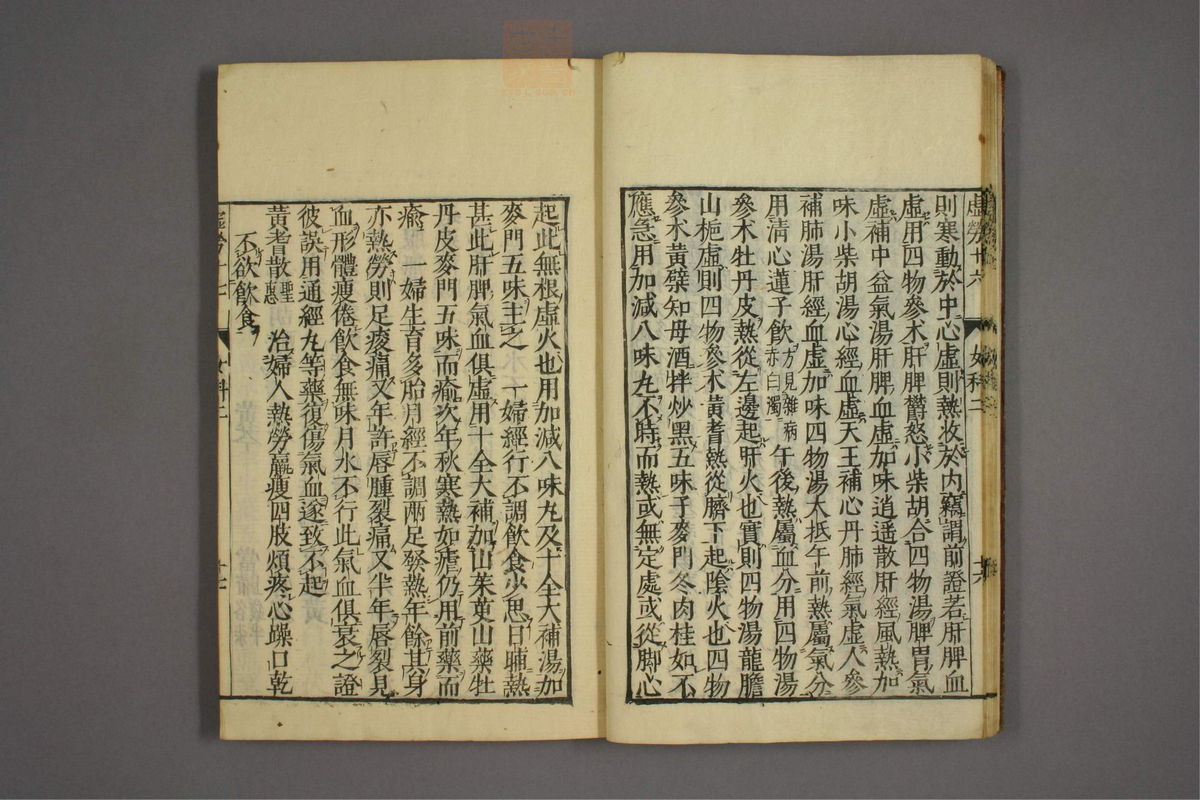 虛勞十六 女科二 十六
則寒動於中心虛則熱收於內竊謂前證若肝脾血
虛用四物參朮肝脾欝怒小柴胡合四物湯脾胃氣
虛補中益氣湯肝脾血虛加味逍遥散肝經風熱加
味小柴胡湯心經血虛天王補心丹肺經氣虛人參
補肺湯肝經血虛加味四物湯大抵午前熱屬氣分
用清心蓮子飲方見雜病赤白濁午後熱屬血分用四物湯
參朮牡丹皮熱從左邊起肝火也實則四物湯龍膽
山梔虛則四物參朮黃耆熱從臍下起陰火也四物
參朮黃蘗知母酒拌炒黑五味子麥門冬肉桂如不
應急用加減八味丸不時而熱或無定處或從脚心
起此無根虛火也用加減八味丸及十全大補湯加
麥門五味主之 一婦經行不調飲食少思日晡熱
甚此肝脾氣血俱虛用十全大補加山茱萸山藥牡
丹皮麥門五味而瘉次年秋寒熱如瘧仍用前藥而
瘉 一婦生育多胎月經不調兩足發熱年餘其身
亦熱勞則足痠痛又年許唇腫裂痛又半年唇裂見
血形體瘦倦飲食無味月水不行此氣血俱衰之證
彼誤用通經丸等藥復傷氣血遂致不起
黃耆散聖惠 治婦人熱勞羸瘦四肢煩疼心躁口乾
不欲飲食